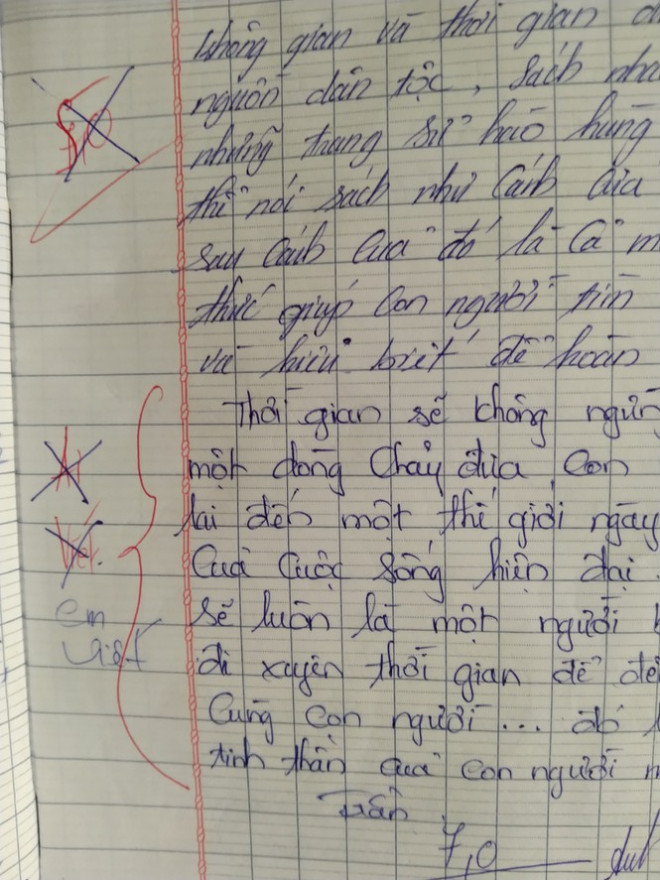 không gian và thời gian
nguồn dân tộc, sách
những trang sử hào hùng
thể nói sách như cánh cửa
sau cánh cửa đó là cả
thức giúp con người tìm
và hiểu biết để hoàn
Thời gian sẽ không ngừng
một dòng chảy đưa con
lai đến một thế giới ngày
của cuộc sống hiện đại.
sẽ luôn là một người
đi xuyên thời gian để
cùng con người... đó
tinh thần của con người
trần
7,0
5,0
Ai
viết.
em
viết